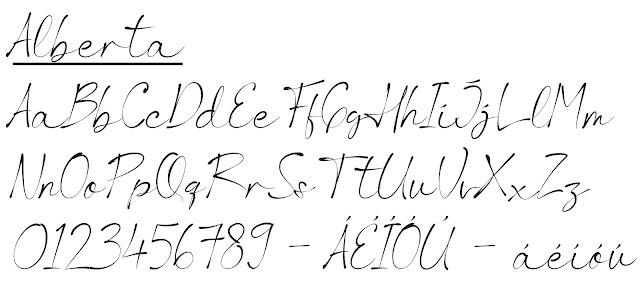 Alberta
AaBbCcDdEe FfGgHhIiJjLlMm
NnOoPpQqRrSs TtUuVvXxZz
0123456789 - ÁÉÍÓÚ - áéíóú